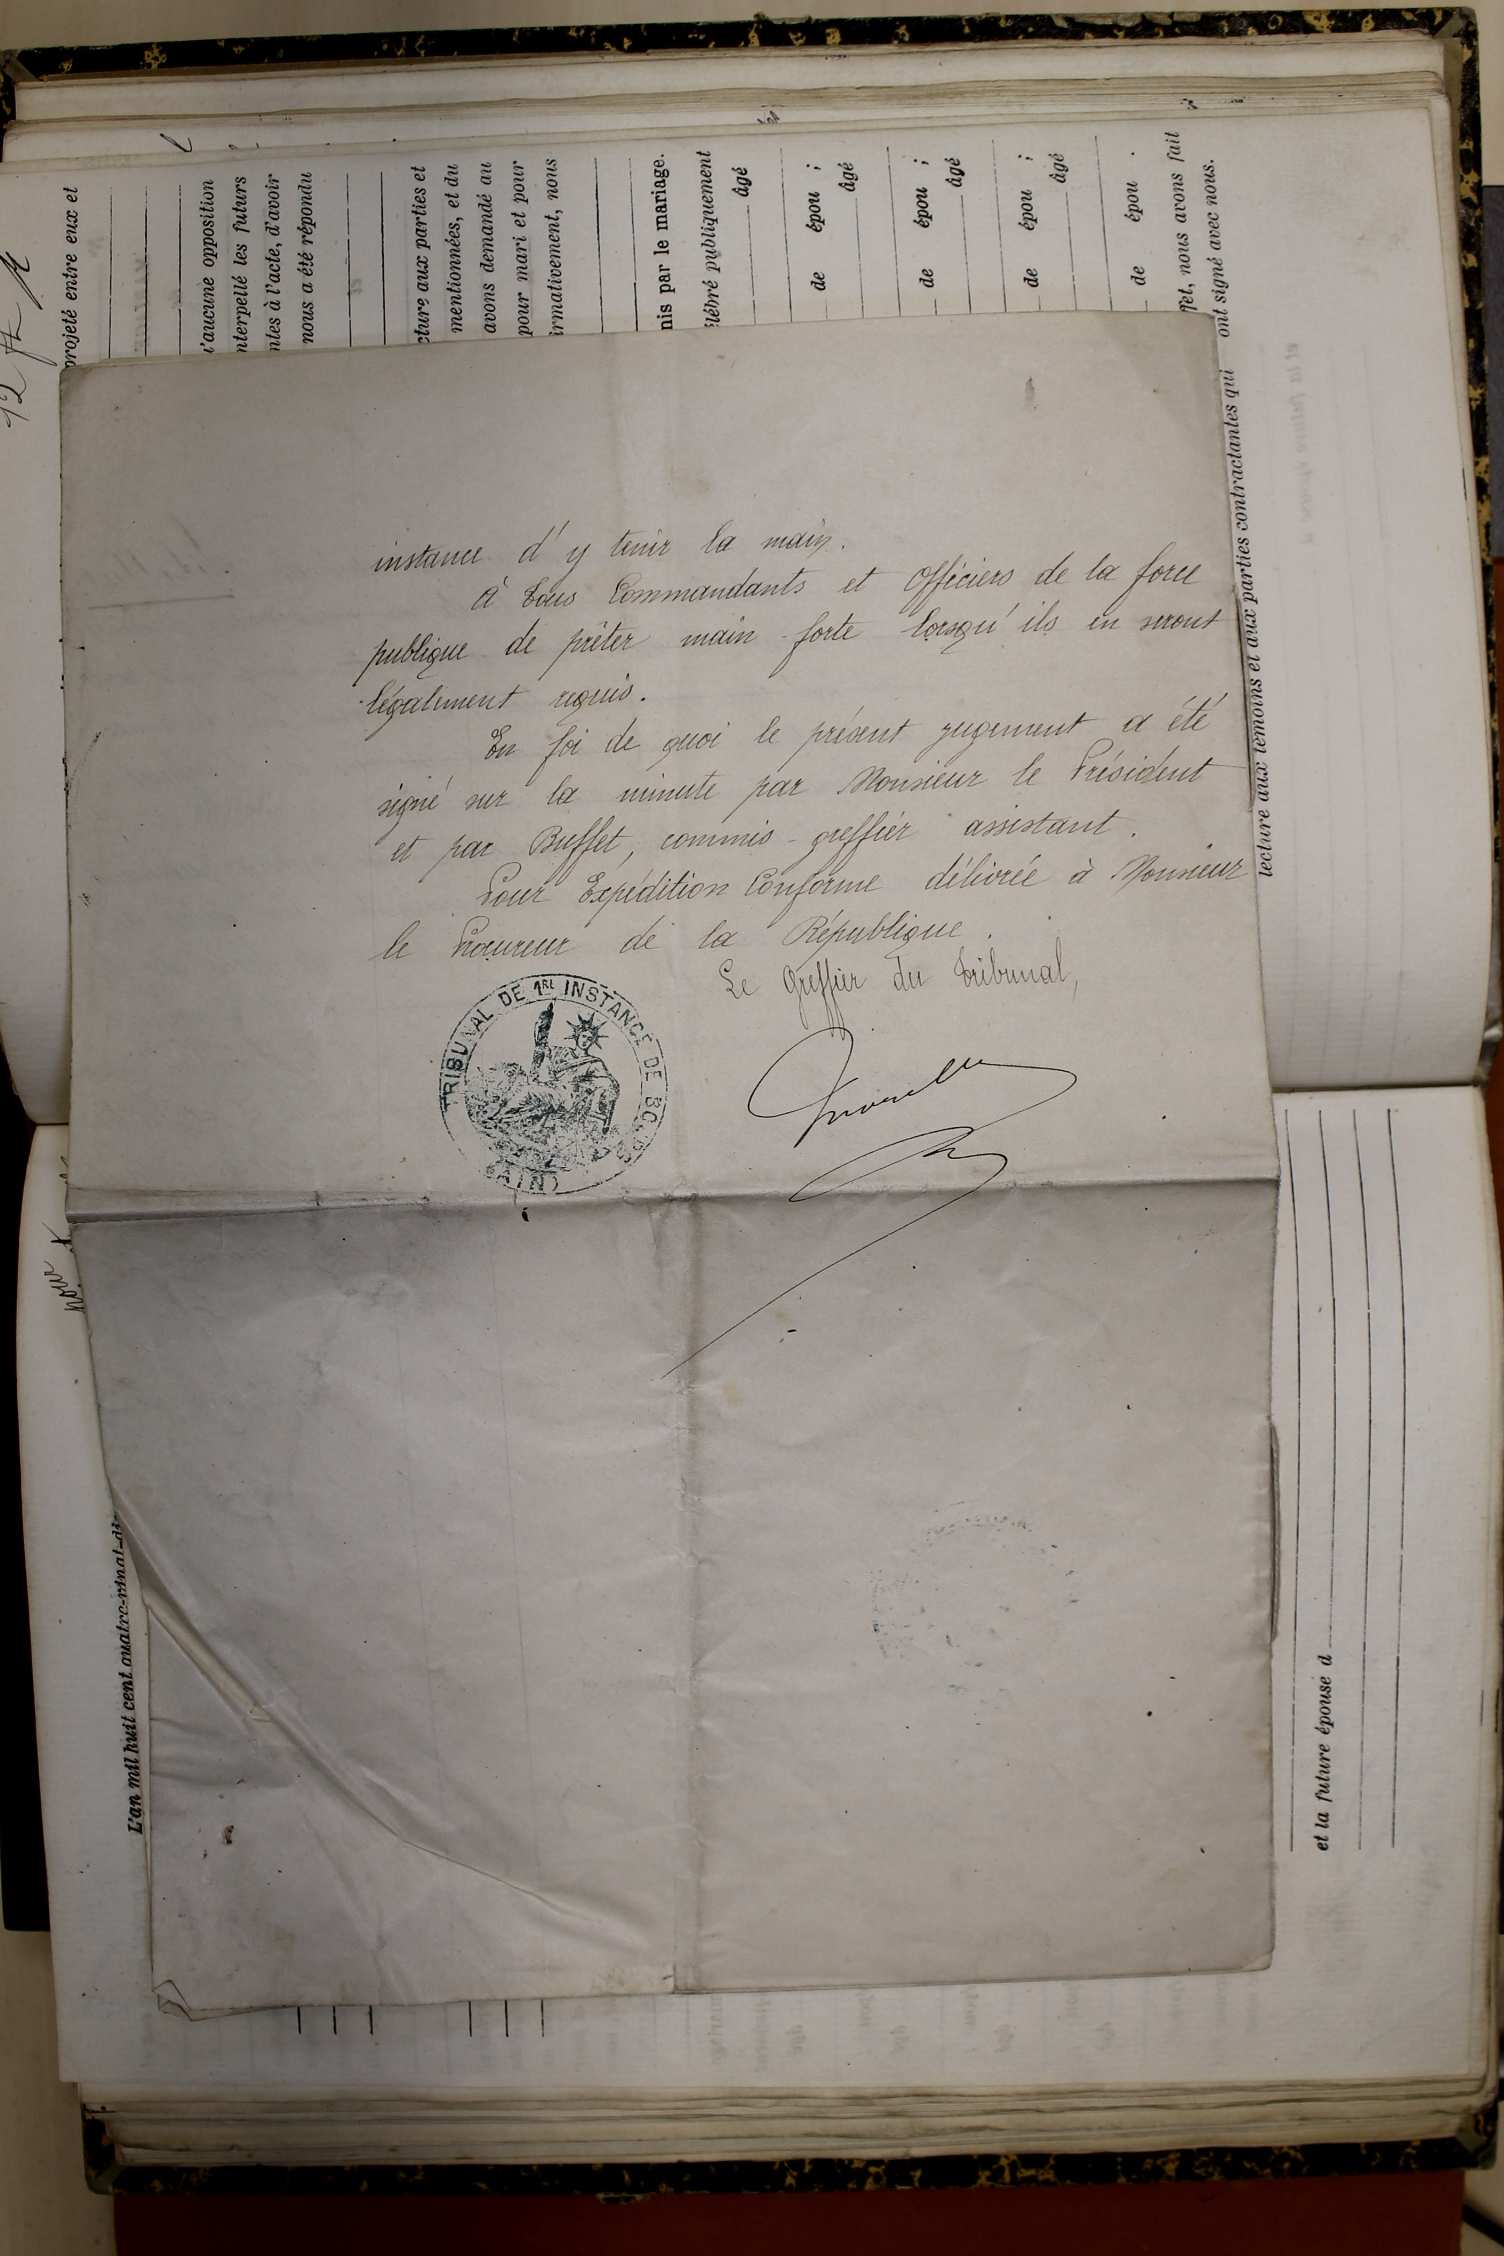 instance d'y tenir la main.
à tous Commandants et Officiers de la force
publique de prêter main-forte lorsqu'ils en seront
légalement requis.
En foi de quoi le présent jugement a été
signé sur la minute par Monsieur le Président
et par Buffet, commis-greffier assistant.
Pour Expédition Conforme délivrée à Monsieur
le Procureur de la République.
Le Greffier du Tribunal,
TRIBUNAL DE 1RE INSTANCE DE BOURG
(AIN)
projeté entre eux et
d'aucune opposition
interpellé les futurs
à l'acte, d'avoir
nous a été répondu
aux parties et
mentionnées, et du
avons demandé au
pour mari et pour
nous
par le mariage.
publiquement
âgé
de épou ;
âgé
de épou ;
âgé
de épou ;
âgé
de épou .
nous avons fait
lecture aux témoins et aux parties contractantes qui ont signé avec nous.
L'an mil huit cent quatre-vingt-di
et la future épouse d